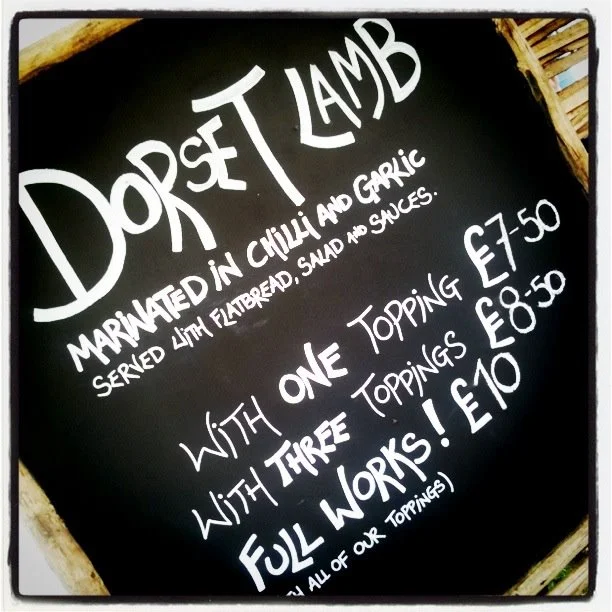 DORSET LAMB
MARINATED IN CHILLI AND GARLIC
SERVED WITH FLATBREAD, SALAD AND SAUCES.
WITH ONE TOPPING £7-50
WITH THREE TOPPINGS £8-50
FULL WORKS! £10
ALL OF OUR TOPPINGS)